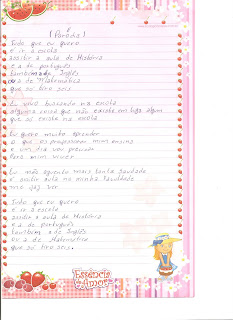 (Paródia)
Tudo que eu quero
é ir a escola
assistir a aula de História
e a de português
também a de Inglês
ou a de Matemática
que eu tiro seis
Eu vivo buscando na escola
alguma coisa que não existe em lugar algum
que só existe na escola
Eu quero muito aprender
o que os professores
e um dia vou precisar
Para mim viver
Eu não aguento mais tanta saudade
é assistir aula na minha faculdade
Tudo que eu quero
é ir a escola
assistir a aula de História
e a de português
também a de Inglês
ou a de Matemática
que eu tiro seis.
Essência
do Amor